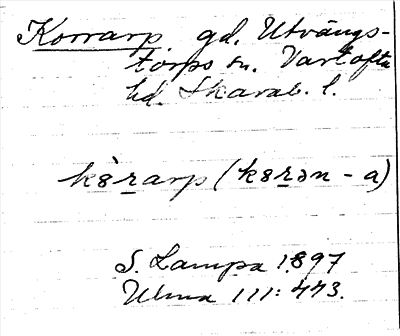 Korrarp gd. Utvängs-
torps sn. Vartofta
hd. Skarab. l.
kȣ̀r̲arp (kȣr̲ən - a)
S. Lampa 1897
Ulma 111: 443.